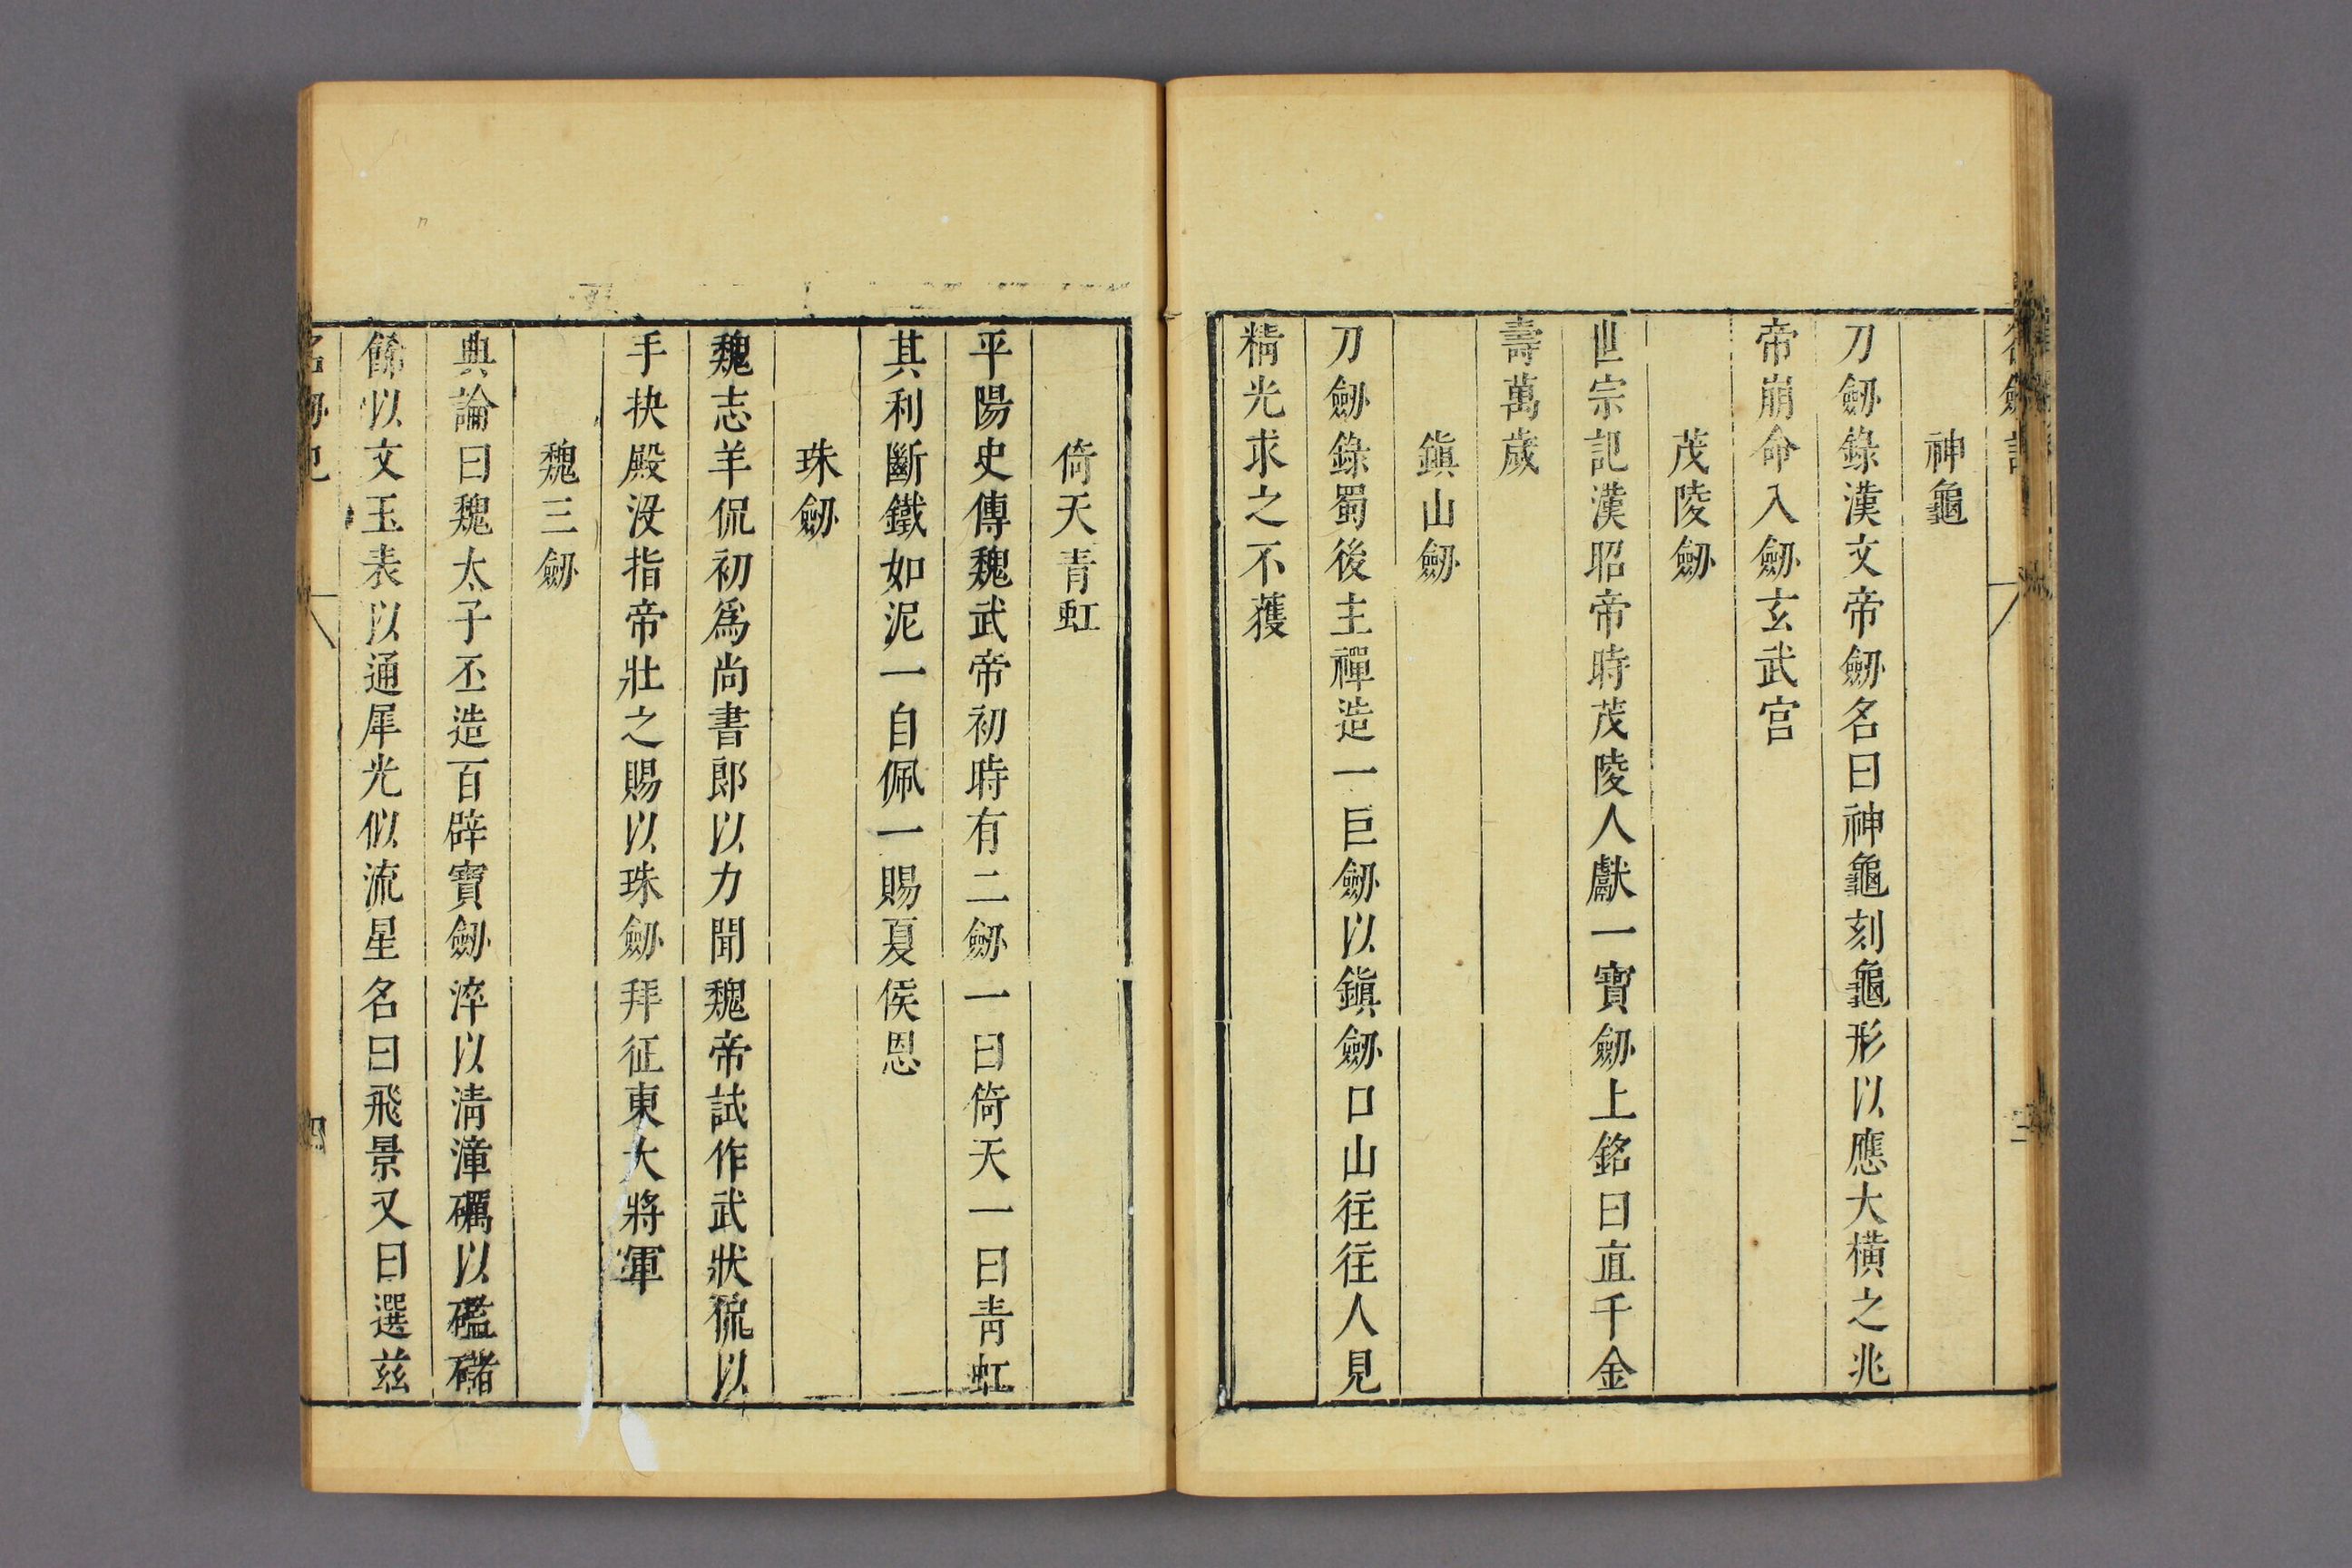 名劒記
神龜
刀劒錄漢文帝劒名曰神龜刻龜形以應大橫之兆
帝崩命入劒玄武宮
茂陵劒
世宗記漢昭帝時茂陵人獻一寶劒上銘曰直千金
壽萬歲
鎭山劒
刀劒錄蜀後主禪造一巨劒以鎭劒口山往往人見
精光求之不獲
倚天青虹
平陽史傳魏武帝初時有二劒一曰倚天一曰靑虹
其利斷鐵如泥一自佩一賜夏侯恩
珠劒
魏志羊侃初爲尚書郎以力聞魏帝試作武狀侃以
手抉殿没指帝壯之賜以珠劒拜征東大將軍
魏三劒
典論曰魏太子丕造百辟寶劒淬以清漳礪以礛䃴
餙以文玉表以通犀光似流星名曰飛景又曰選茲
名劒記
四